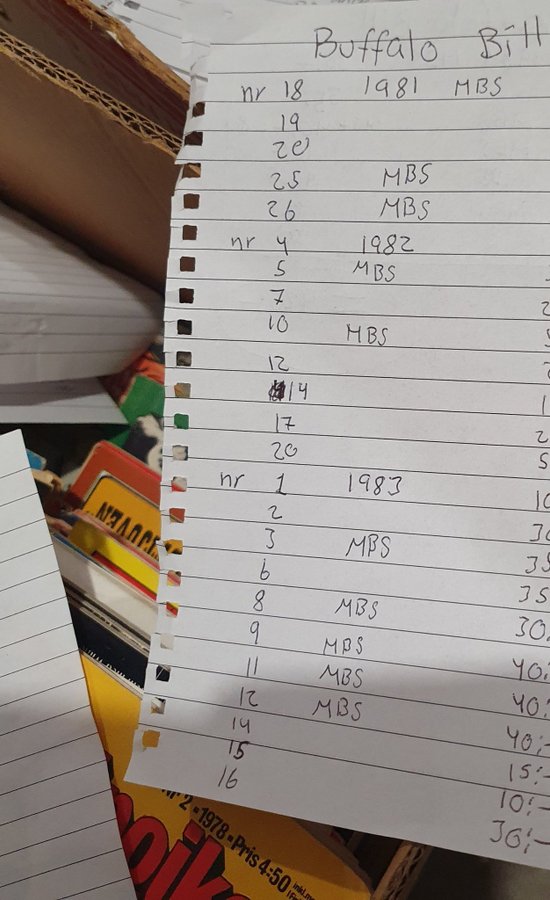 Buffalo Bill
nr 18 1981 MBS
19
20
25 MBS
26 MBS
nr 4 1982
5 MBS
7 2
10 MBS 5
12 2
14 1
17 2
20 5
nr 1 1983 10
2 30
3 MBS 35
6 35
8 MBS 30:
9 MBS 40:
11 MBS 40:
12 MBS 40:-
14 15:-
15 10:-
16 30:-
Nr 2 • 1978 • Pris 4:50